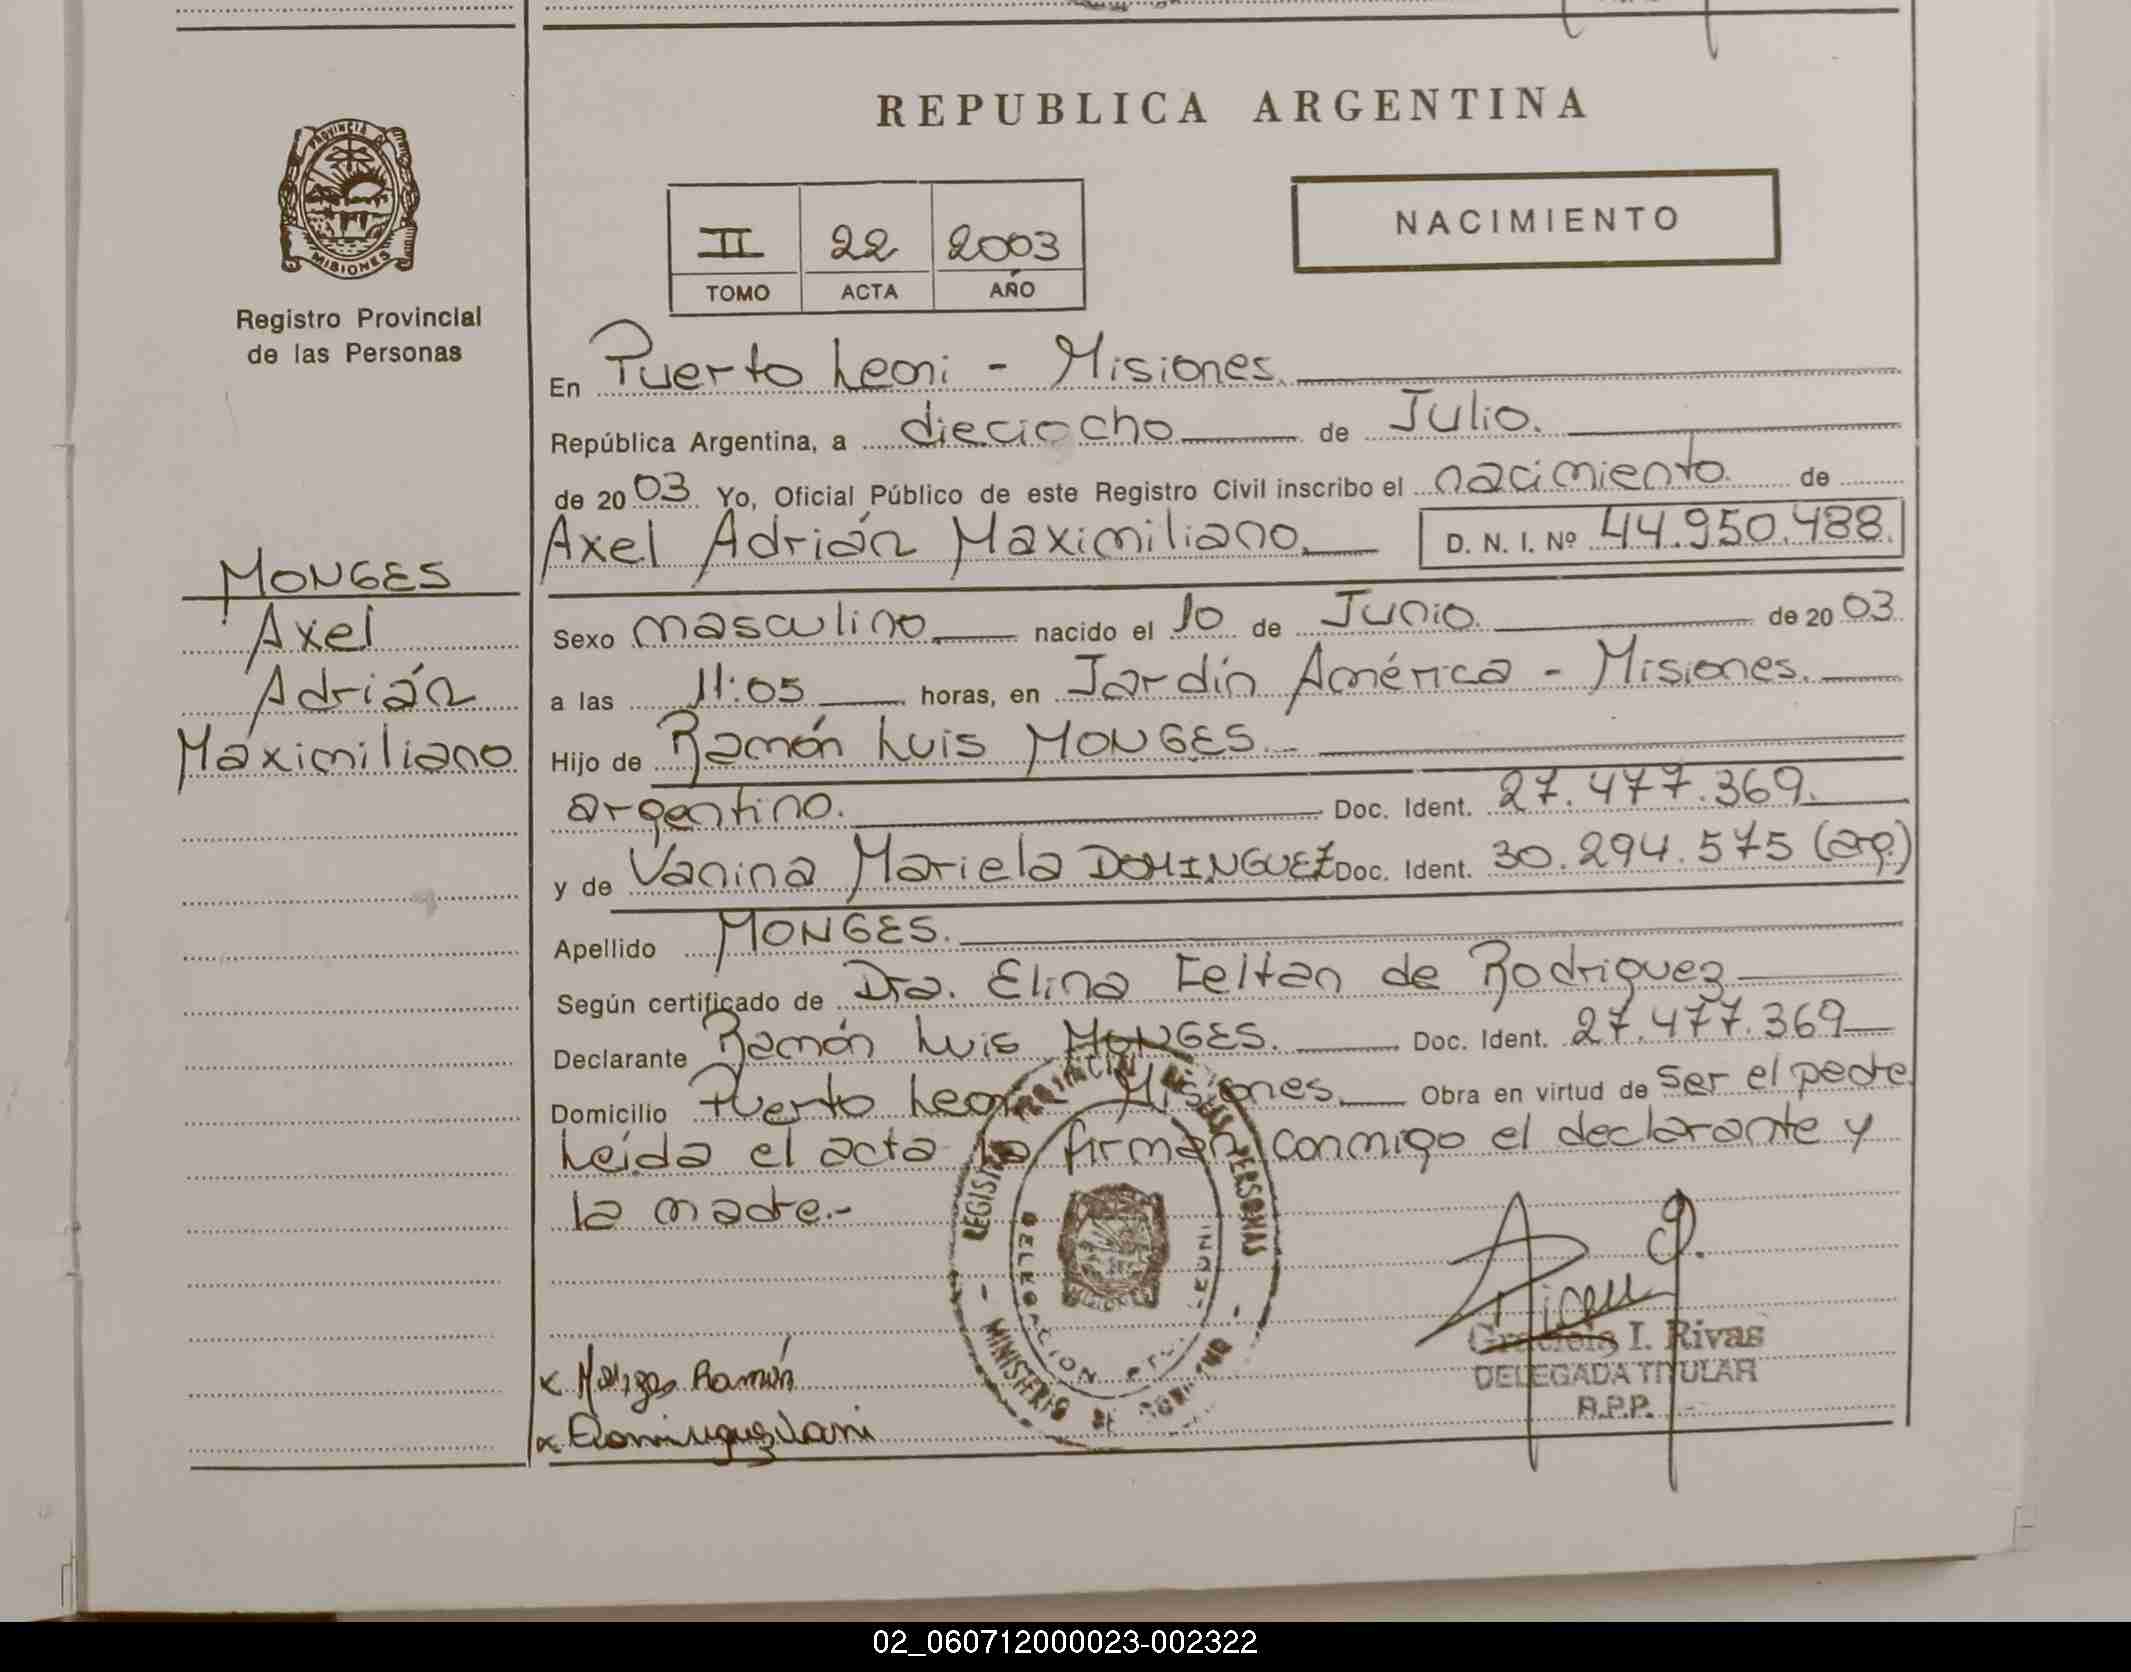 REPUBLICA ARGENTINA
PROVINCIA DE
MISIONES
Registro Provincial
de las Personas
II 22 2003
TOMO ACTA AÑO
NACIMIENTO
En Puerto Leoni - Misiones.
República Argentina, a dieciocho de Julio.
de 2003 Yo, Oficial Público de este Registro Civil inscribo el nacimiento de
Axel Adrián Maximiliano. D. N. I. Nº 44.950.488.
MONGES
Axel
Adrián
Maximiliano
Sexo masculino nacido el 10 de Junio. de 2003.
a las 11:05 horas, en Jardín América - Misiones.
Hijo de Ramón Luis MONGES.-
argentino. Doc. Ident. 27.477.369.
y de Vanina Mariela DOMINGUEZ Doc. Ident. 30.294.575 (arg.)
Apellido MONGES.
Según certificado de Dra. Elina Feltan de Rodriguez
Declarante Ramón Luis MONGES. Doc. Ident. 27.477.369
Domicilio Puerto Leoni Misiones. Obra en virtud de ser el padre.
Leída el acta la firman conmigo el declarante y
la madre.-
REGISTRO PROVINCIAL DE LAS PERSONAS
DELEGACION PTO. LEONI
- MINISTERIO DE GOBIERNO -
x Monges Ramón
x Dominguez Vani
Rivas G.
Graciela I. Rivas
DELEGADA TITULAR
R.P.P.
02_060712000023-002322